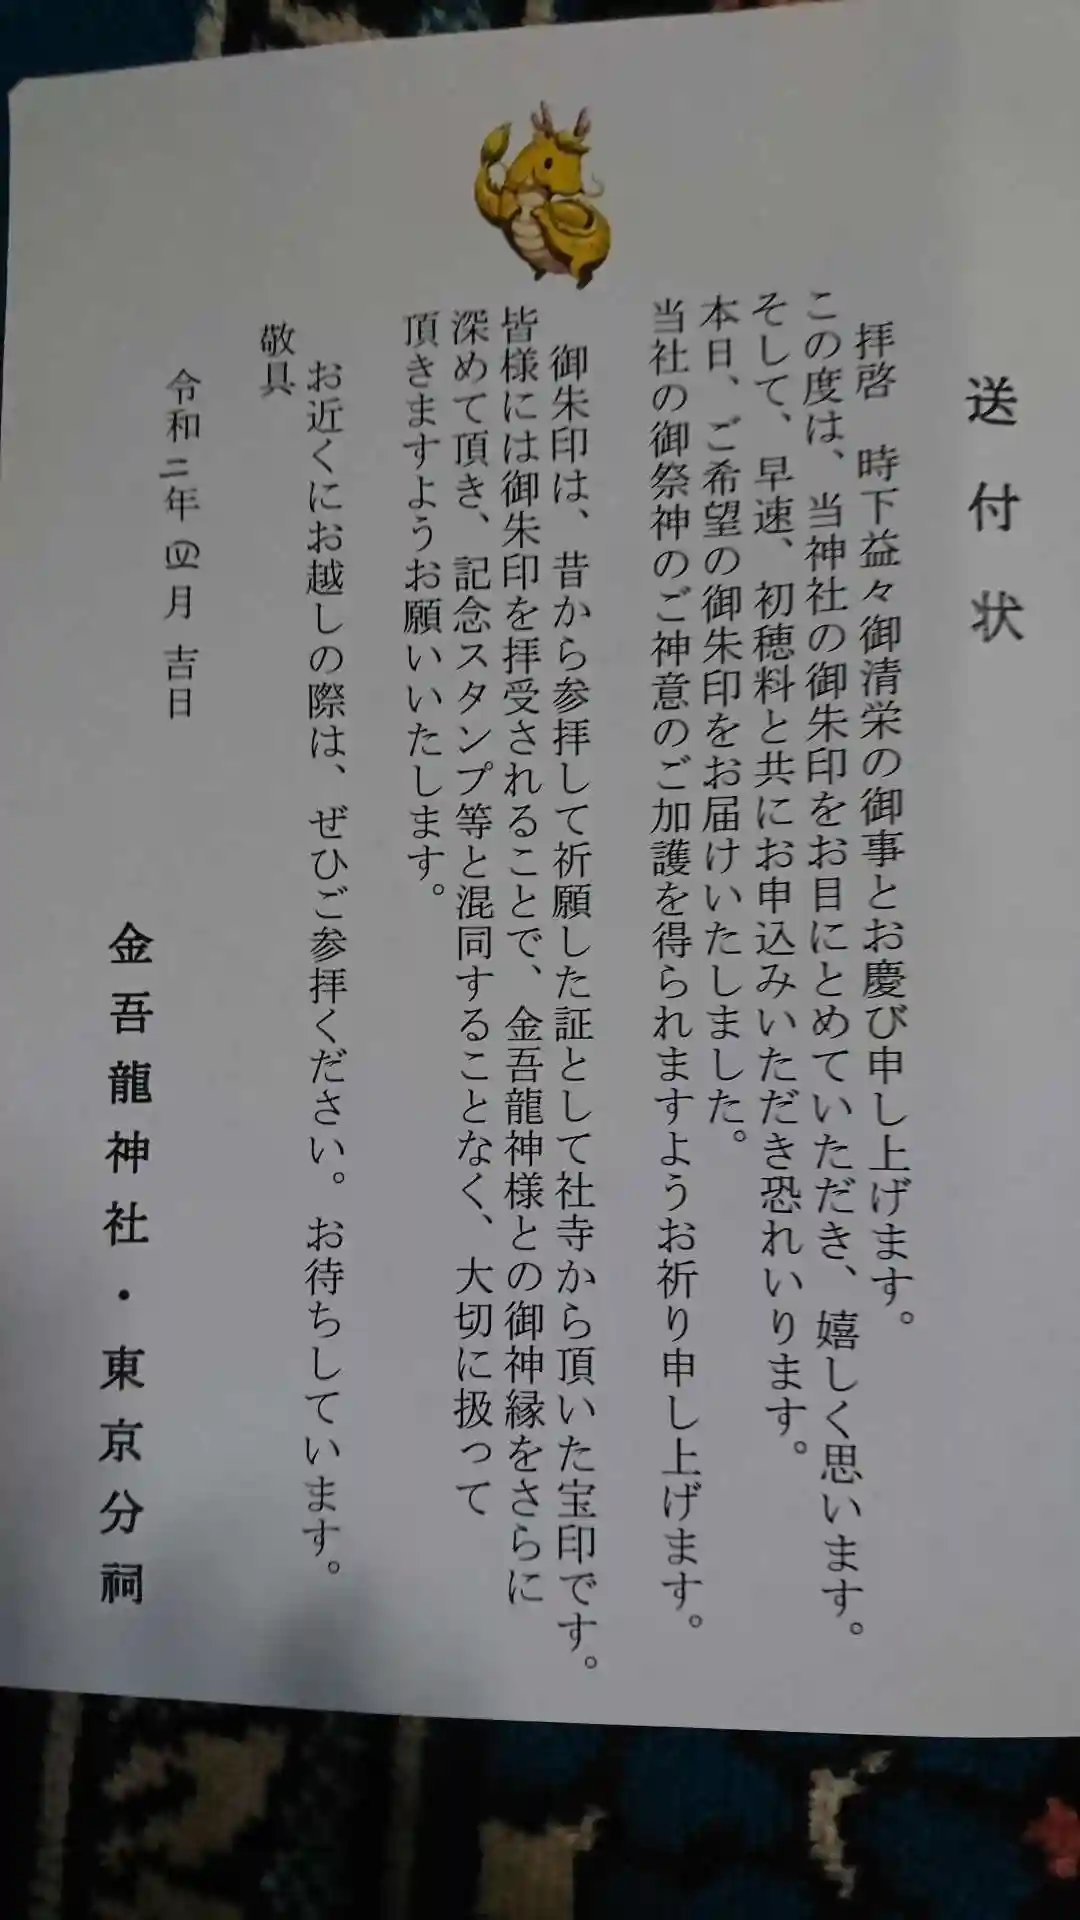 送付状
拝啓　時下益々御清栄の御事とお慶び申し上げます。
この度は、当神社の御朱印をお目にとめていただき、嬉しく思います。
そして、早速、初穂料と共にお申込みいただき恐れいります。
本日、ご希望の御朱印をお届けいたしました。
当社の御祭神のご神意のご加護を得られますようお祈り申し上げます。
御朱印は、昔から参拝して祈願した証として社寺から頂いた宝印です。
皆様には御朱印を拝受されることで、金吾龍神様との御神縁をさらに
深めて頂き、記念スタンプ等と混同することなく、大切に扱って
頂きますようお願いいたします。
お近くにお越しの際は、ぜひご参拝ください。お待ちしています。
敬具
令和二年四月吉日
金吾龍神社・東京分祠